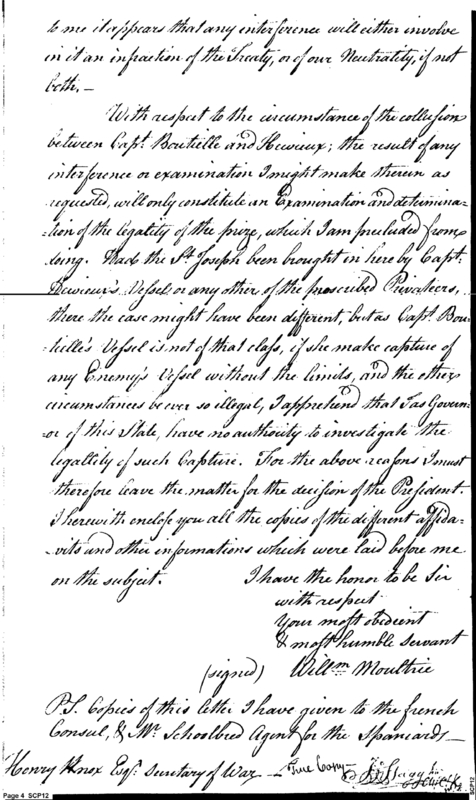 to me it appears that any interference will either involve
in it an infraction of the Treaty, or of our Neutrality, if not
both.—
With respect to the circumstance of the collusion
between Capt. Boutielle and Hervieux; the result of any
interference or examination I might make therein as
requested, will only constitute an Examination and determina-
-tion of the legality of the prize, which I am precluded from
doing. Had the St. Joseph been brought in here by Capt.
Hervieux's Vessel or any other of the proscribed Privateers,
there the case might have been different, but as Capt. Bou-
-tielle's Vessel is not of that class, if she make capture of
any Enemy's Vessel without the limits, and the other
circumstances be ever so illegal, I apprehend that I as Govern-
-or of this State, have no authority to investigate the
legallity of such Capture. For the above reasons I must
therefore leave the matter for the decision of the President.
I herewith enclose you all the copies of the different affida-
-vits and other informations which were laid before me
on the subject. I have the honor to be Sir
with respect
Your most obedient
& most humble servant
(signed) Willm Moultrie
P.S. Copies of this letter I have given to the french
Consul, & Mr. Schoolbred Agent for the Spaniards—
Henry Knox Esqr. Secretary of War — True Copy
Page 4 SCP12